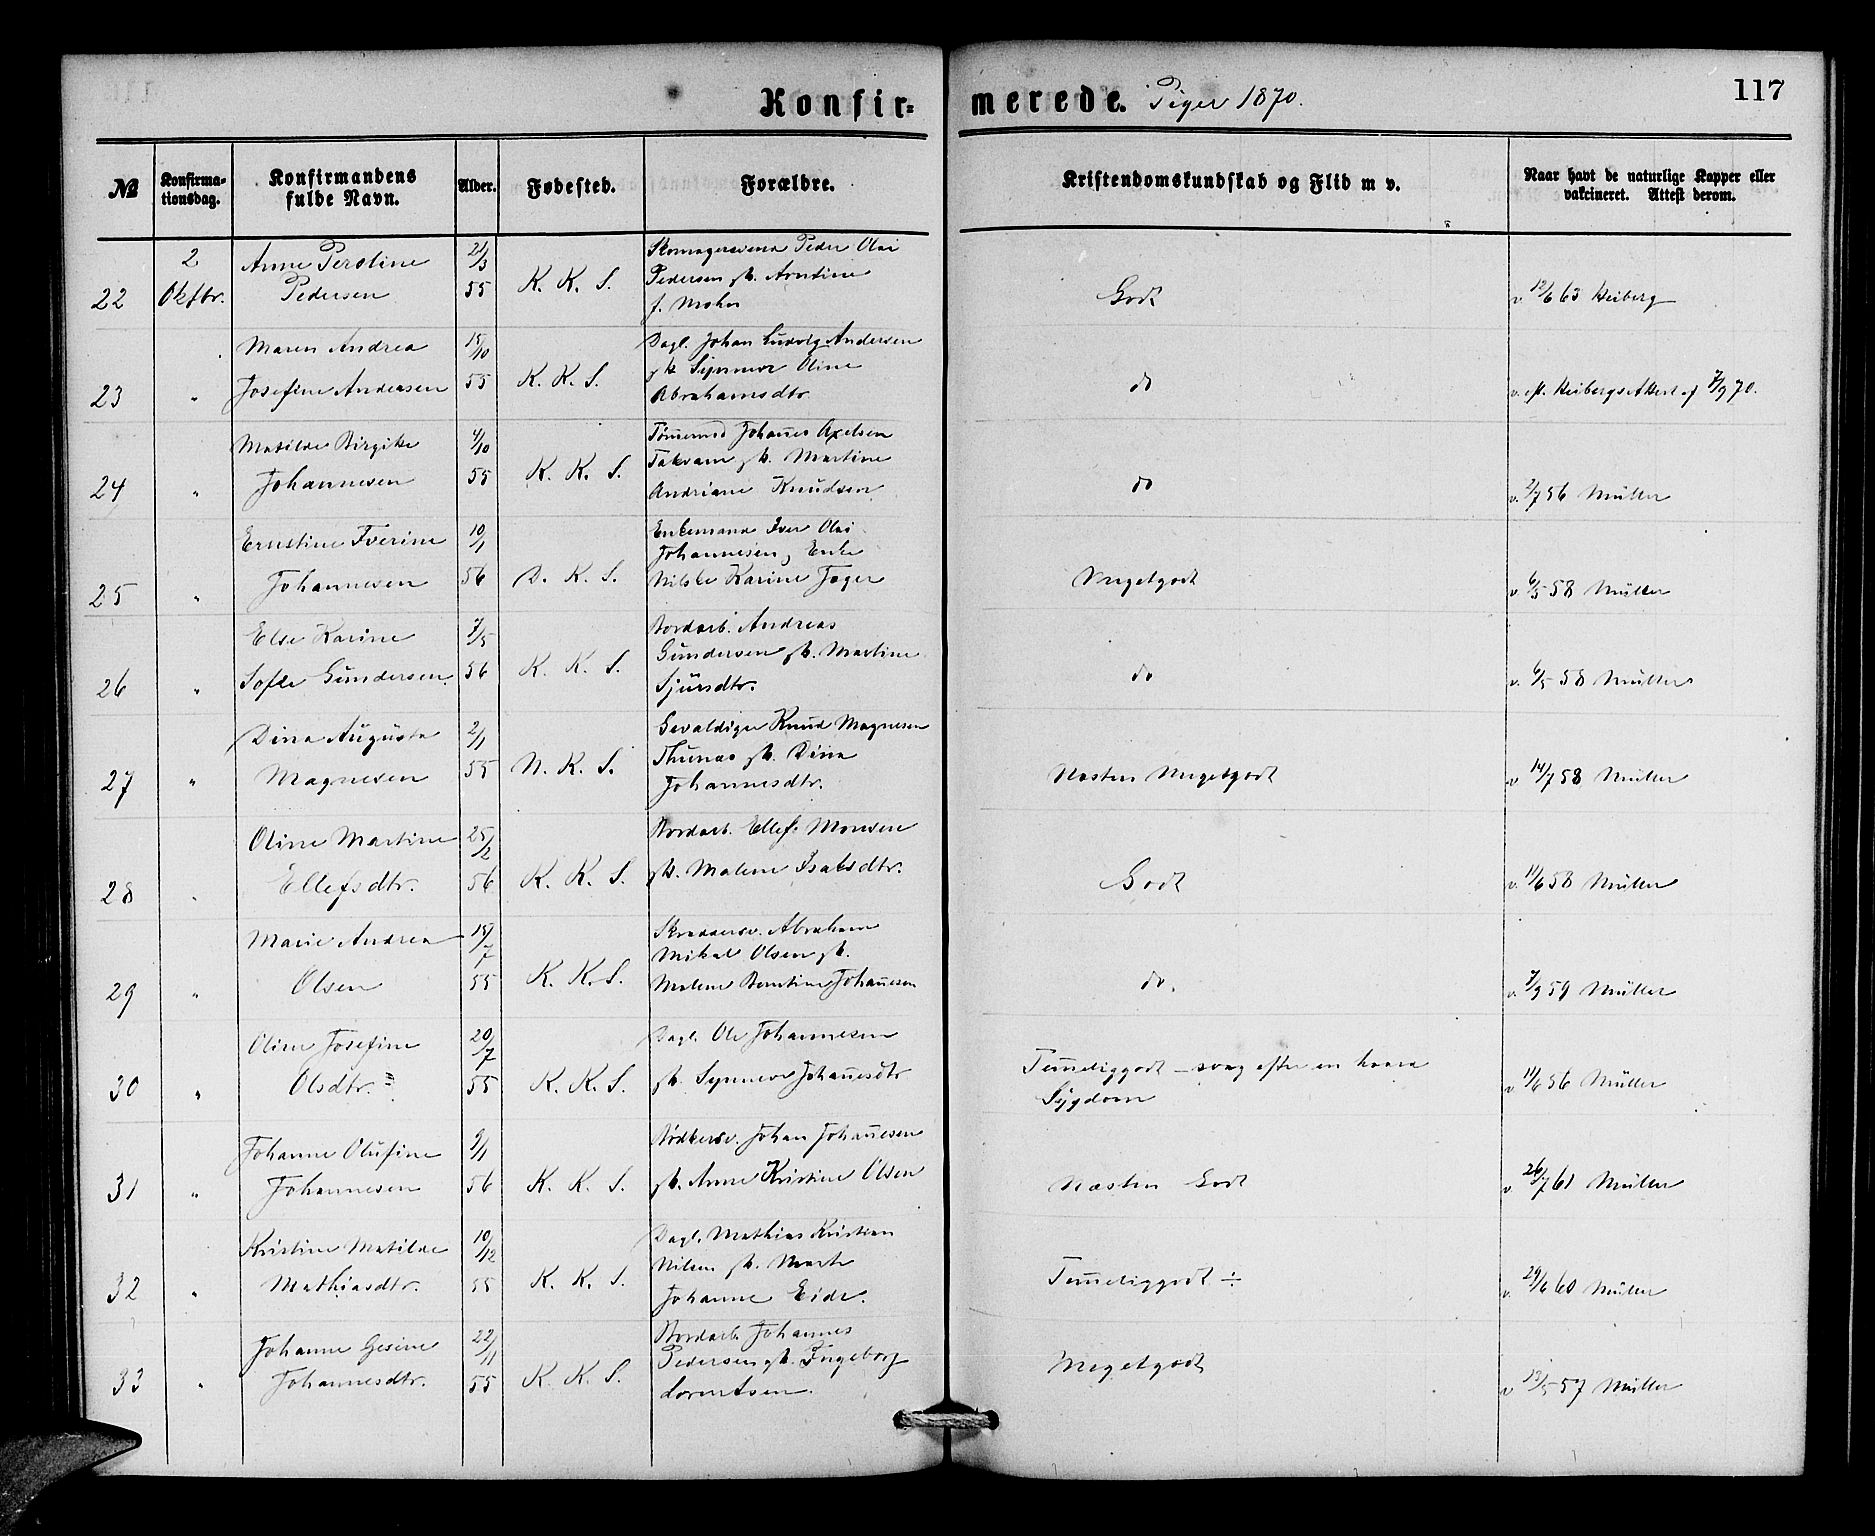 Konfirmerede. Piger 1870.
117
№
Konfirmationsdag.
Konfirmandens fulde Navn.
Alder.
Fødested.
Forældre.
Kristendomskundskab og Flid m v.
Naar havt de naturlige Kopper eller vakcineret. Attest derom.
22
2 Oktbr.
Anne Perstine
Pedersen
2/3 55
K. K. S.
Skomagersvend Peder Olai
Pedersen gh. Arntine
f. Mohn
Godt
v. 12/6 63 Heiberg
23
"
Maren Andrea
Josefine Andersen
15/10 55
K. K. S.
Dagl. Johan Ludvig Andersen
gh. Synneve Oline
Abrahamsdtr.
do
v. efl. Heibergs Attest af 7/9 70.
24
"
Matilde Birgitte
Johannesen
4/10 55
K. K. S.
Tømmermd Johañes Axelsen
Takvam gh. Martine
Andriane Knudsen
do
v. 2/7 56 Müller
25
"
Ernstine Iverine
Johannesen
10/1 56
D. K. S.
Enkemand Iver Olai
Johannesen, Enke
Nilske Karine Jager
Megetgodt
v. 6/5 58 Müller
26
"
Else Karine
Sofie Gundersen
7/5 56
K. K. S.
Bordarb. Andreas
Gundersen gh. Martine
Sjursdtr.
do
v. 6/5 58 Müller
27
"
Dina Augusta
Magnesen
2/1 55
N. K. S.
Gevaldiger Knud Magnesen
Thunæs gh. Dina
Johannesdtr.
Næsten Megetgodt
v. 14/7 58 Müller
28
"
Oline Martine
Ellefsdtr.
25/2 56
K. K. S.
Bordarb. Ellef Monsen
gh. Malene Isaksdtr.
Godt
v. 11/6 58 Müller
29
"
Marie Andrea
Olsen
15/7 55
K. K. S.
Skræddersv. Abraham
Mikal Olsen gh.
Malene Berntine Johañesen
do.
v. 7/9 59 Müller
30
"
Oline Josefine
Olsdtr.
20/7 55
K. K. S.
Dagl. Ole Johannesen
gh. Synneve Johañesdtr
Temeliggodt – svag efter en haard
Sygdom
v. 11/6 56 Müller
31
"
Johanne Olufine
Johannesen
9/1 56
K. K. S.
Bødkersv. Johan Johañesen
gh. Anne Kristine Olsen
Næsten Godt
v. 26/7 61 Müller
32
"
Kristine Matilde
Mathiasdtr.
10/12 55
K. K. S.
Dagl. Mathias Kristian
Nilsen gh. Marte
Johanne Eide.
Temeliggodt ÷
v. 29/6 60 Müller
33
"
Johanne Gesine
Johannesdtr.
22/11 55
K. K. S.
Bordarb. Johannes
Pedersen gh. Ingeborg
Lorentsen.
Megetgodt
v. 13/5 57 Müller